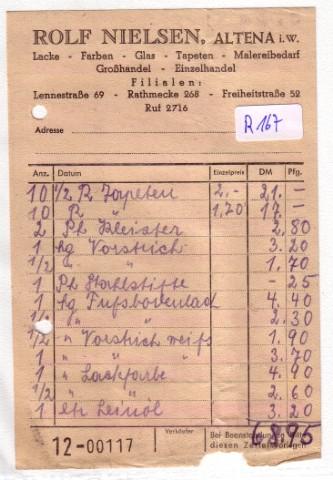 ROLF NIELSEN, ALTENA i.W.
Lacke - Farben - Glas - Tapeten - Malereibedarf
Großhandel - Einzelhandel
Filialen:
Lennestraße 69 - Rathmecke 268 - Freiheitstraße 52
Ruf 2716
Adresse
R 167
Anz. Datum Einzelpreis DM Pfg.
10 1/2 R Tapeten 2,- 21. -
10 R " 1,70 17 -
2 Pk Kleister 2.80
1 kg Vorstrich 3.20
1/2 " " 1.70
1 Pk Stahlstifte - 25
1 kg Fußbodenlack 4.40
1/2 " " 2.30
1/2 " Vorstrich weiß 1.90
1 " " " 3.70
1 " Lackfarbe 4.90
1/2 " " 2.60
1 ltr Leinöl 3.20
12-00117 Verkäufer Bei Beanstandung
diesen Zettel vorlegen
68.95